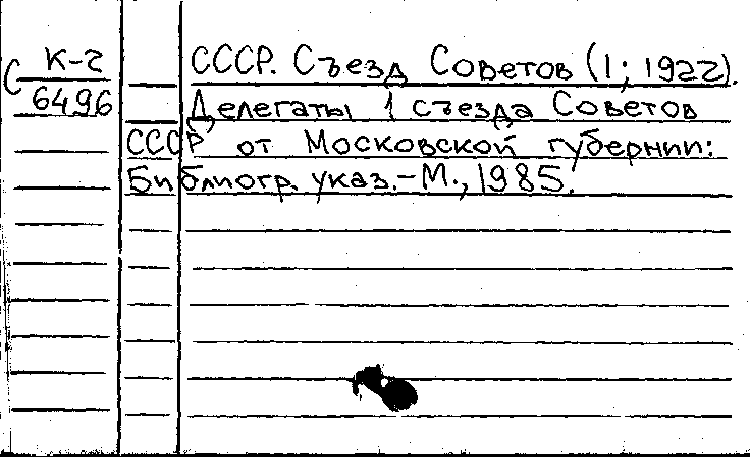 С К-2 СССР. Съезд Советов (1; 1922).
6496 Делегаты 1 съезда Советов
СССР от Московской губернии:
Библиогр. указ.-М., 1985.